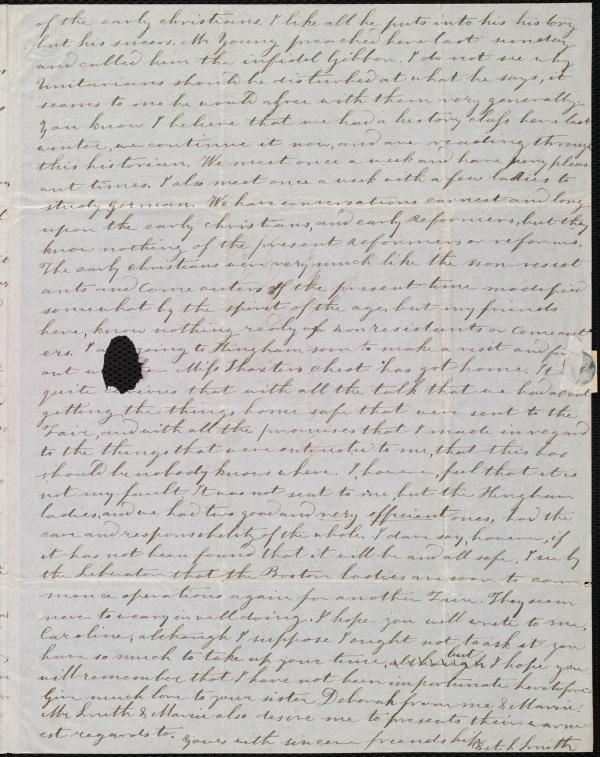 of the early christians. I like all he puts into his history
but his sneers. Mr Young preached here last sunday
and called him the infidel Gibbon. I do not see why
Unitarians should be disturbed at what he says, it
seems to me he would agree with them very generally.
You know I believe that we had a history class here last
winter, we continue it now, and are reading through
this historian. We meet once a week and have very pleas
ant times. I also meet once a week with a few ladies to
study German. We have conversations earnest and long
upon the early christians, and early Reformers, but they
know nothing of the present reformers or reforms.
The early christians were very much like the non resist
ants and Come outers of the present time modified
somewhat by the spirit of the age, but my friends
here, know nothing really of non resistants or come out
ers. I going to Hingham soon to make a visit and
out Miss Thaxters chest has got home. It
quite that with all the talk that we had about
getting the things home safe that were sent to the
Fair, and with all the promises that I made in regard
to the things that were entrusted to me, that this box
should be nobody knows where. I, however, feel that it is
not my fault. It was not sent to me, but the Hingham
ladies, and we had two good and very efficient ones, had the
care and responsibility of the whole. I dare say, however, if
it has not been found that it will be and all safe. I see by
the Liberator that the Boston ladies are soon to com
mence operations again for another Fair. They seem
never to weary in well doing. I hope you will write to me,
Caroline, although I suppose I ought not to ask it you
have so much to take up your time, but I hope you
will remember that I have not been importunate heretofore.
Give much love to your sister Deborah from me & Maria.
Mr Smith & Maria also desire me to presents their warm
est regards to. Yours with sincere friendship
Smith